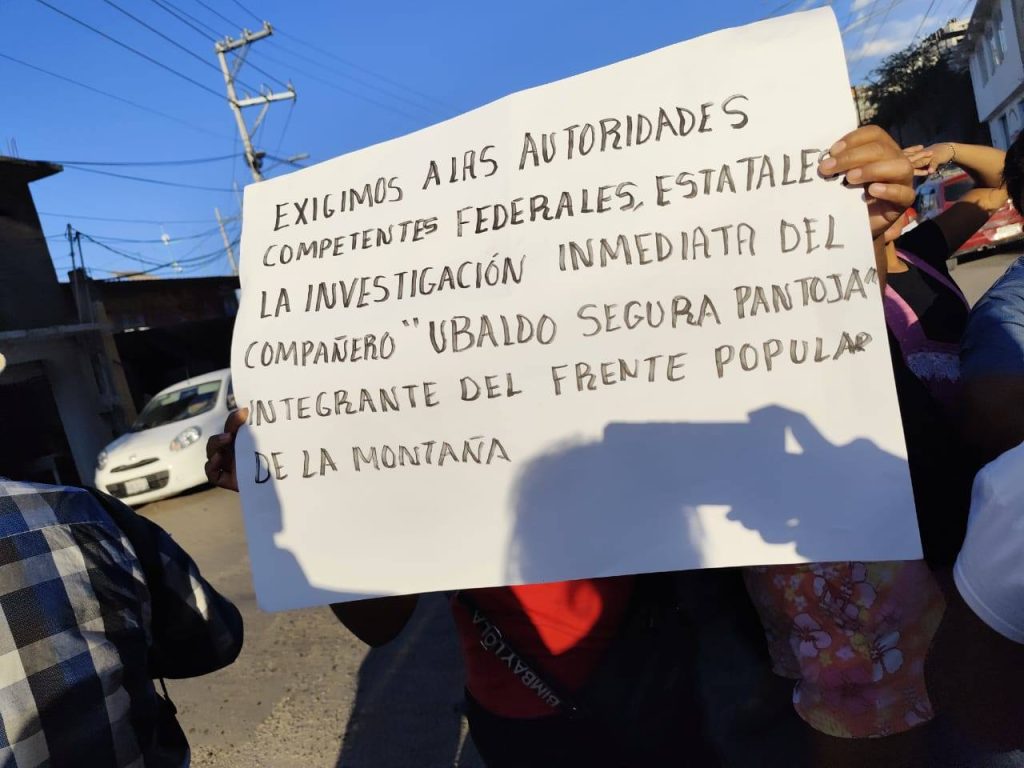 EXIGIMOS A LAS AUTORIDADES
COMPETENTES FEDERALES, ESTATALES
LA INVESTIGACIÓN INMEDIATA DEL
COMPAÑERO "UBALDO SEGURA PANTOJA"
INTEGRANTE DEL FRENTE POPULAR
DE LA MONTAÑA
BIMBAYLOLA